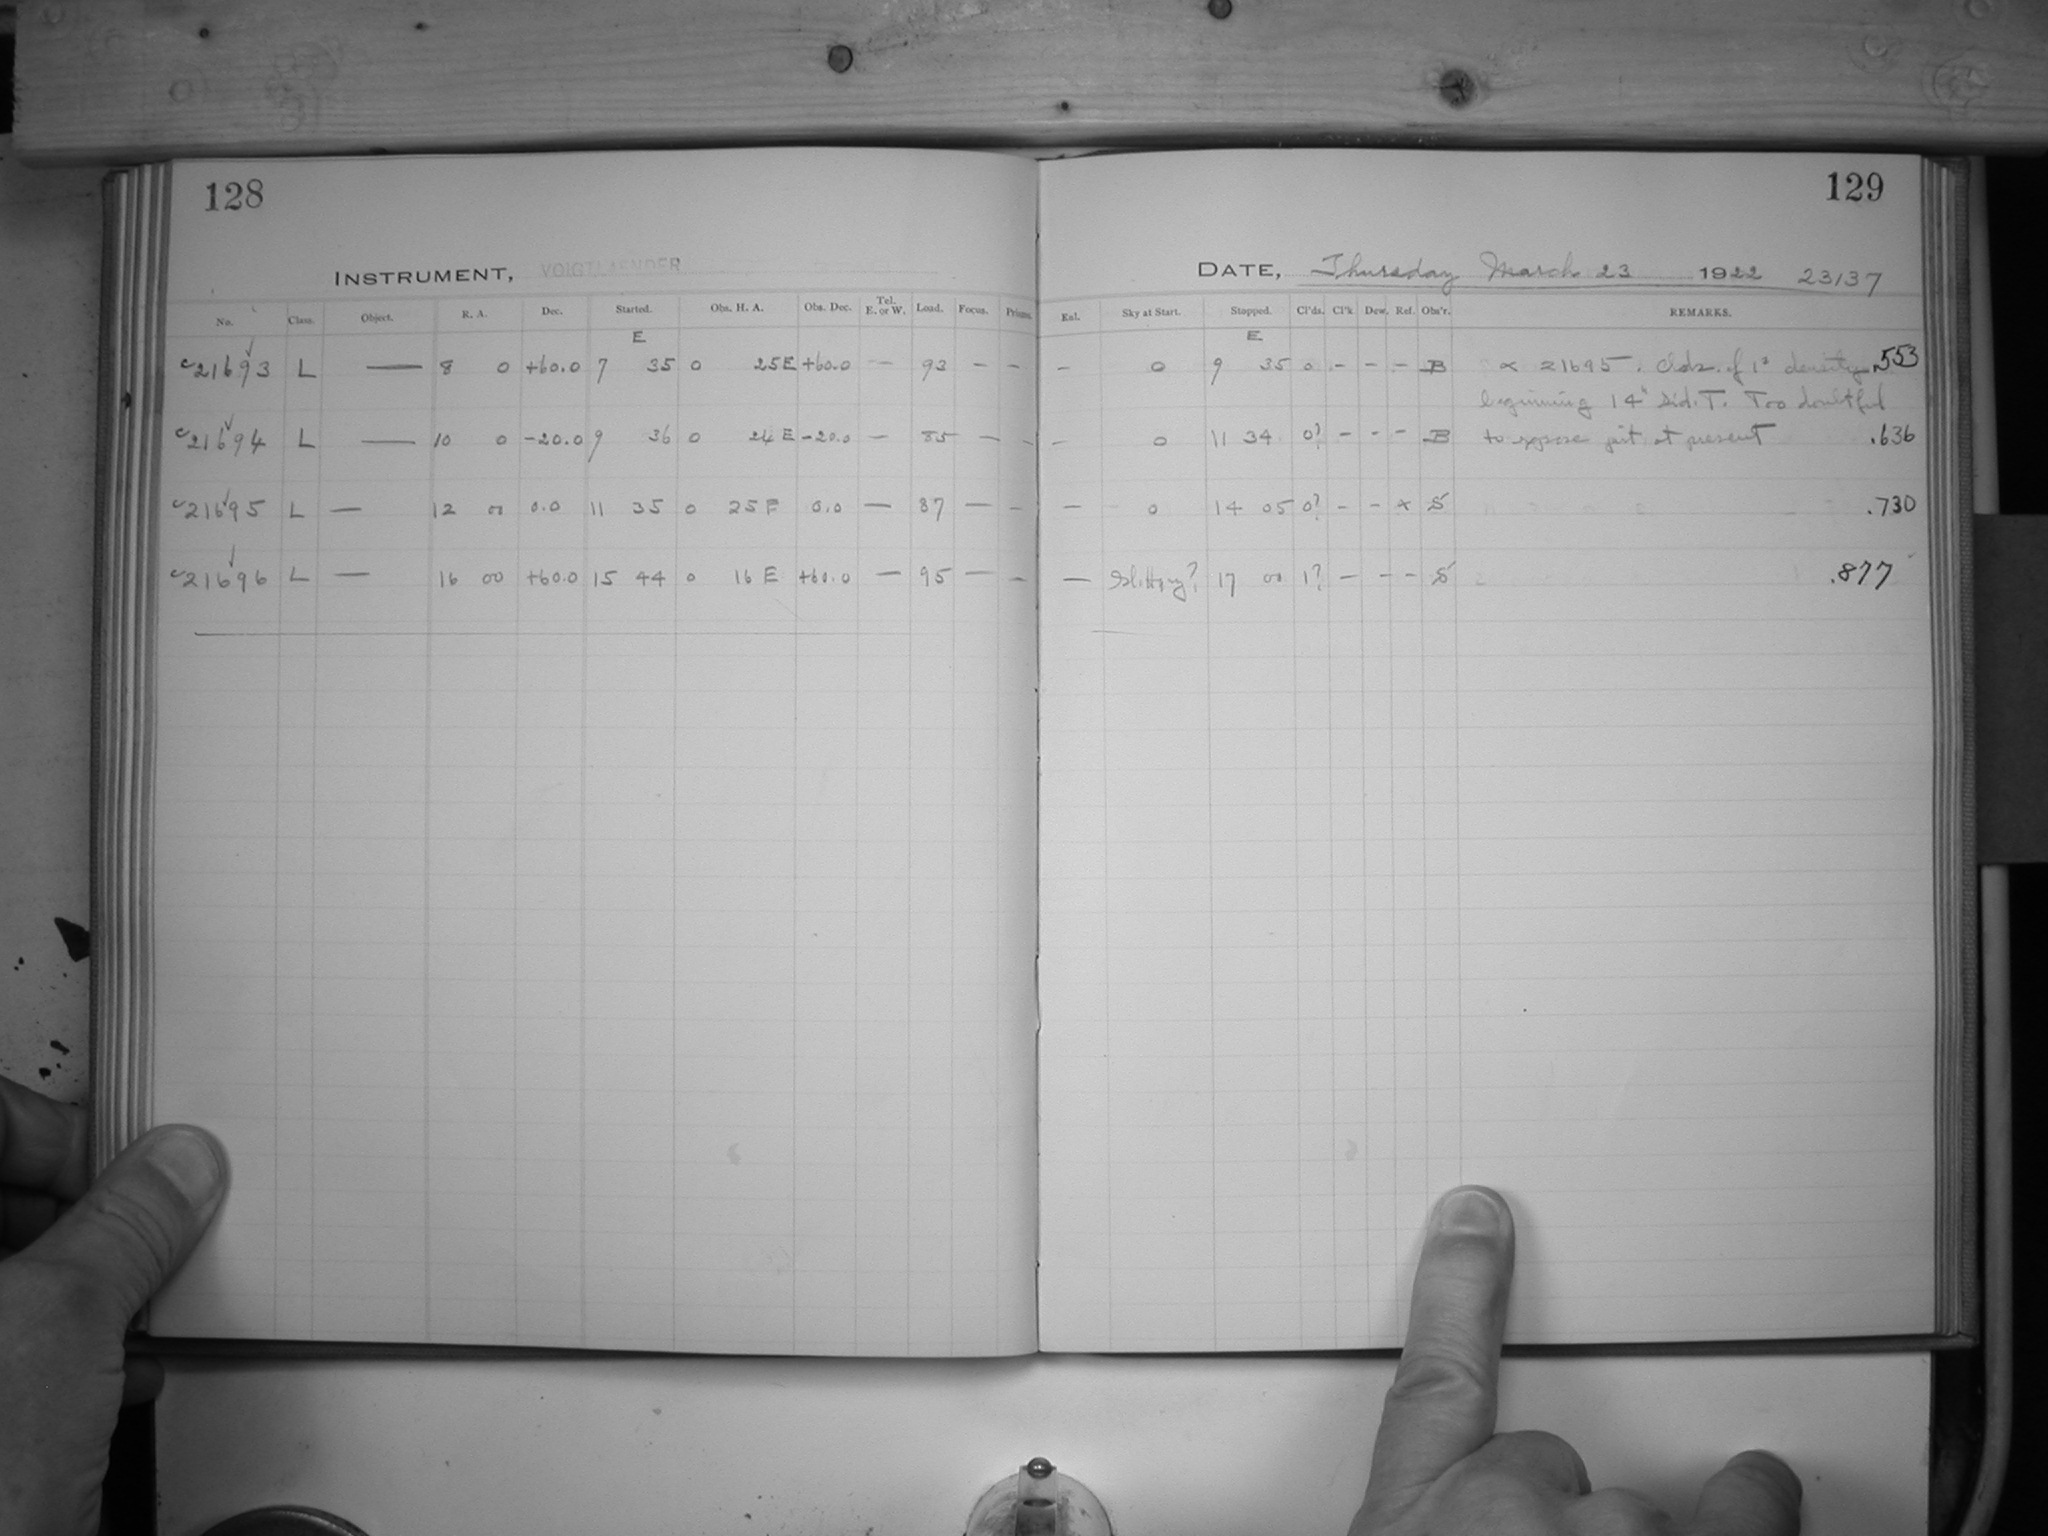 128
129
INSTRUMENT, VOIGTLAENDER
DATE, Thursday March 23 1922 23137
No. Class. Object. R. A. Dec. Started. Obs. H. A. Obs. Dec. Tel. E. or W. Load. Focus. Prisms. Enl. Sky at Start. Stopped. Cl'ds. Cl'k Dew. Ref. Obs'r. REMARKS.
E E
c21693 L — 8 0 +60.0 7 35 0 25E +60.0 — 93 - - - 0 9 35 0 - - - B 21695. Clds. of 1² density .553
beginning 14h Sid. T. Too doubtful
c21694 L — 10 0 -20.0 9 36 0 24E -20.0 - 85 - - - 0 11 34 0? - - - B to expose just at present .636
c21695 L — 12 00 0.0 11 35 0 25E 0.0 — 87 — - — 0 14 05 0? - - x S .730
c21696 L — 16 00 +60.0 15 44 0 16E +60.0 — 95 — - — 17 00 1? - - - S .877